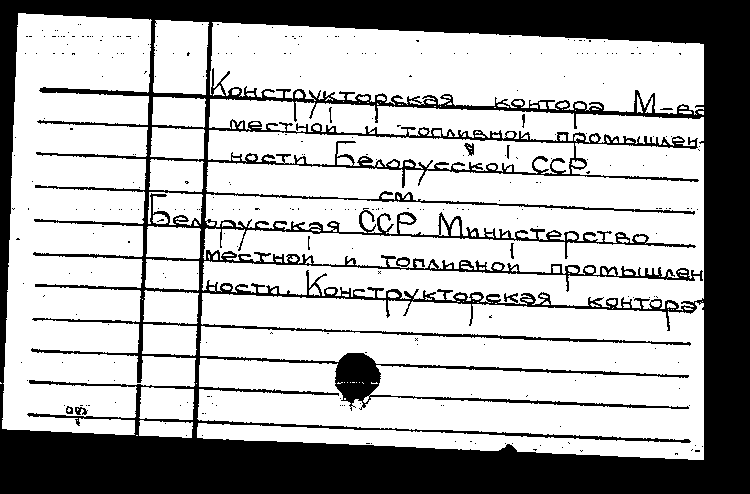 Конструкторская контора М-ва
местной и топливной промышлен-
ности Белорусской ССР.
см.
Белорусская ССР. Министерство
местной и топливной промышлен
ности. Конструкторская контора